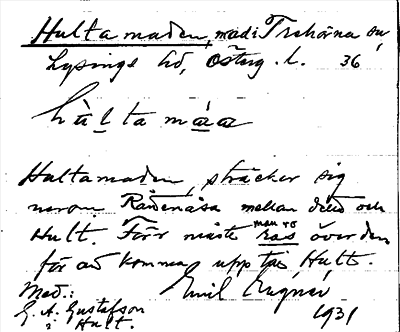 Hultamaden, mad i Trehörna sn,
Lysings hd, Österg. l. 36
hùlta màa
Hultamaden, sträcker sig
norom Rådenäsa mellan detta och
Hult. Förr måste man ro över den
för att komma upp till Hult.
Med.: Emil
G. A. Gustafson 1931
i Hult.